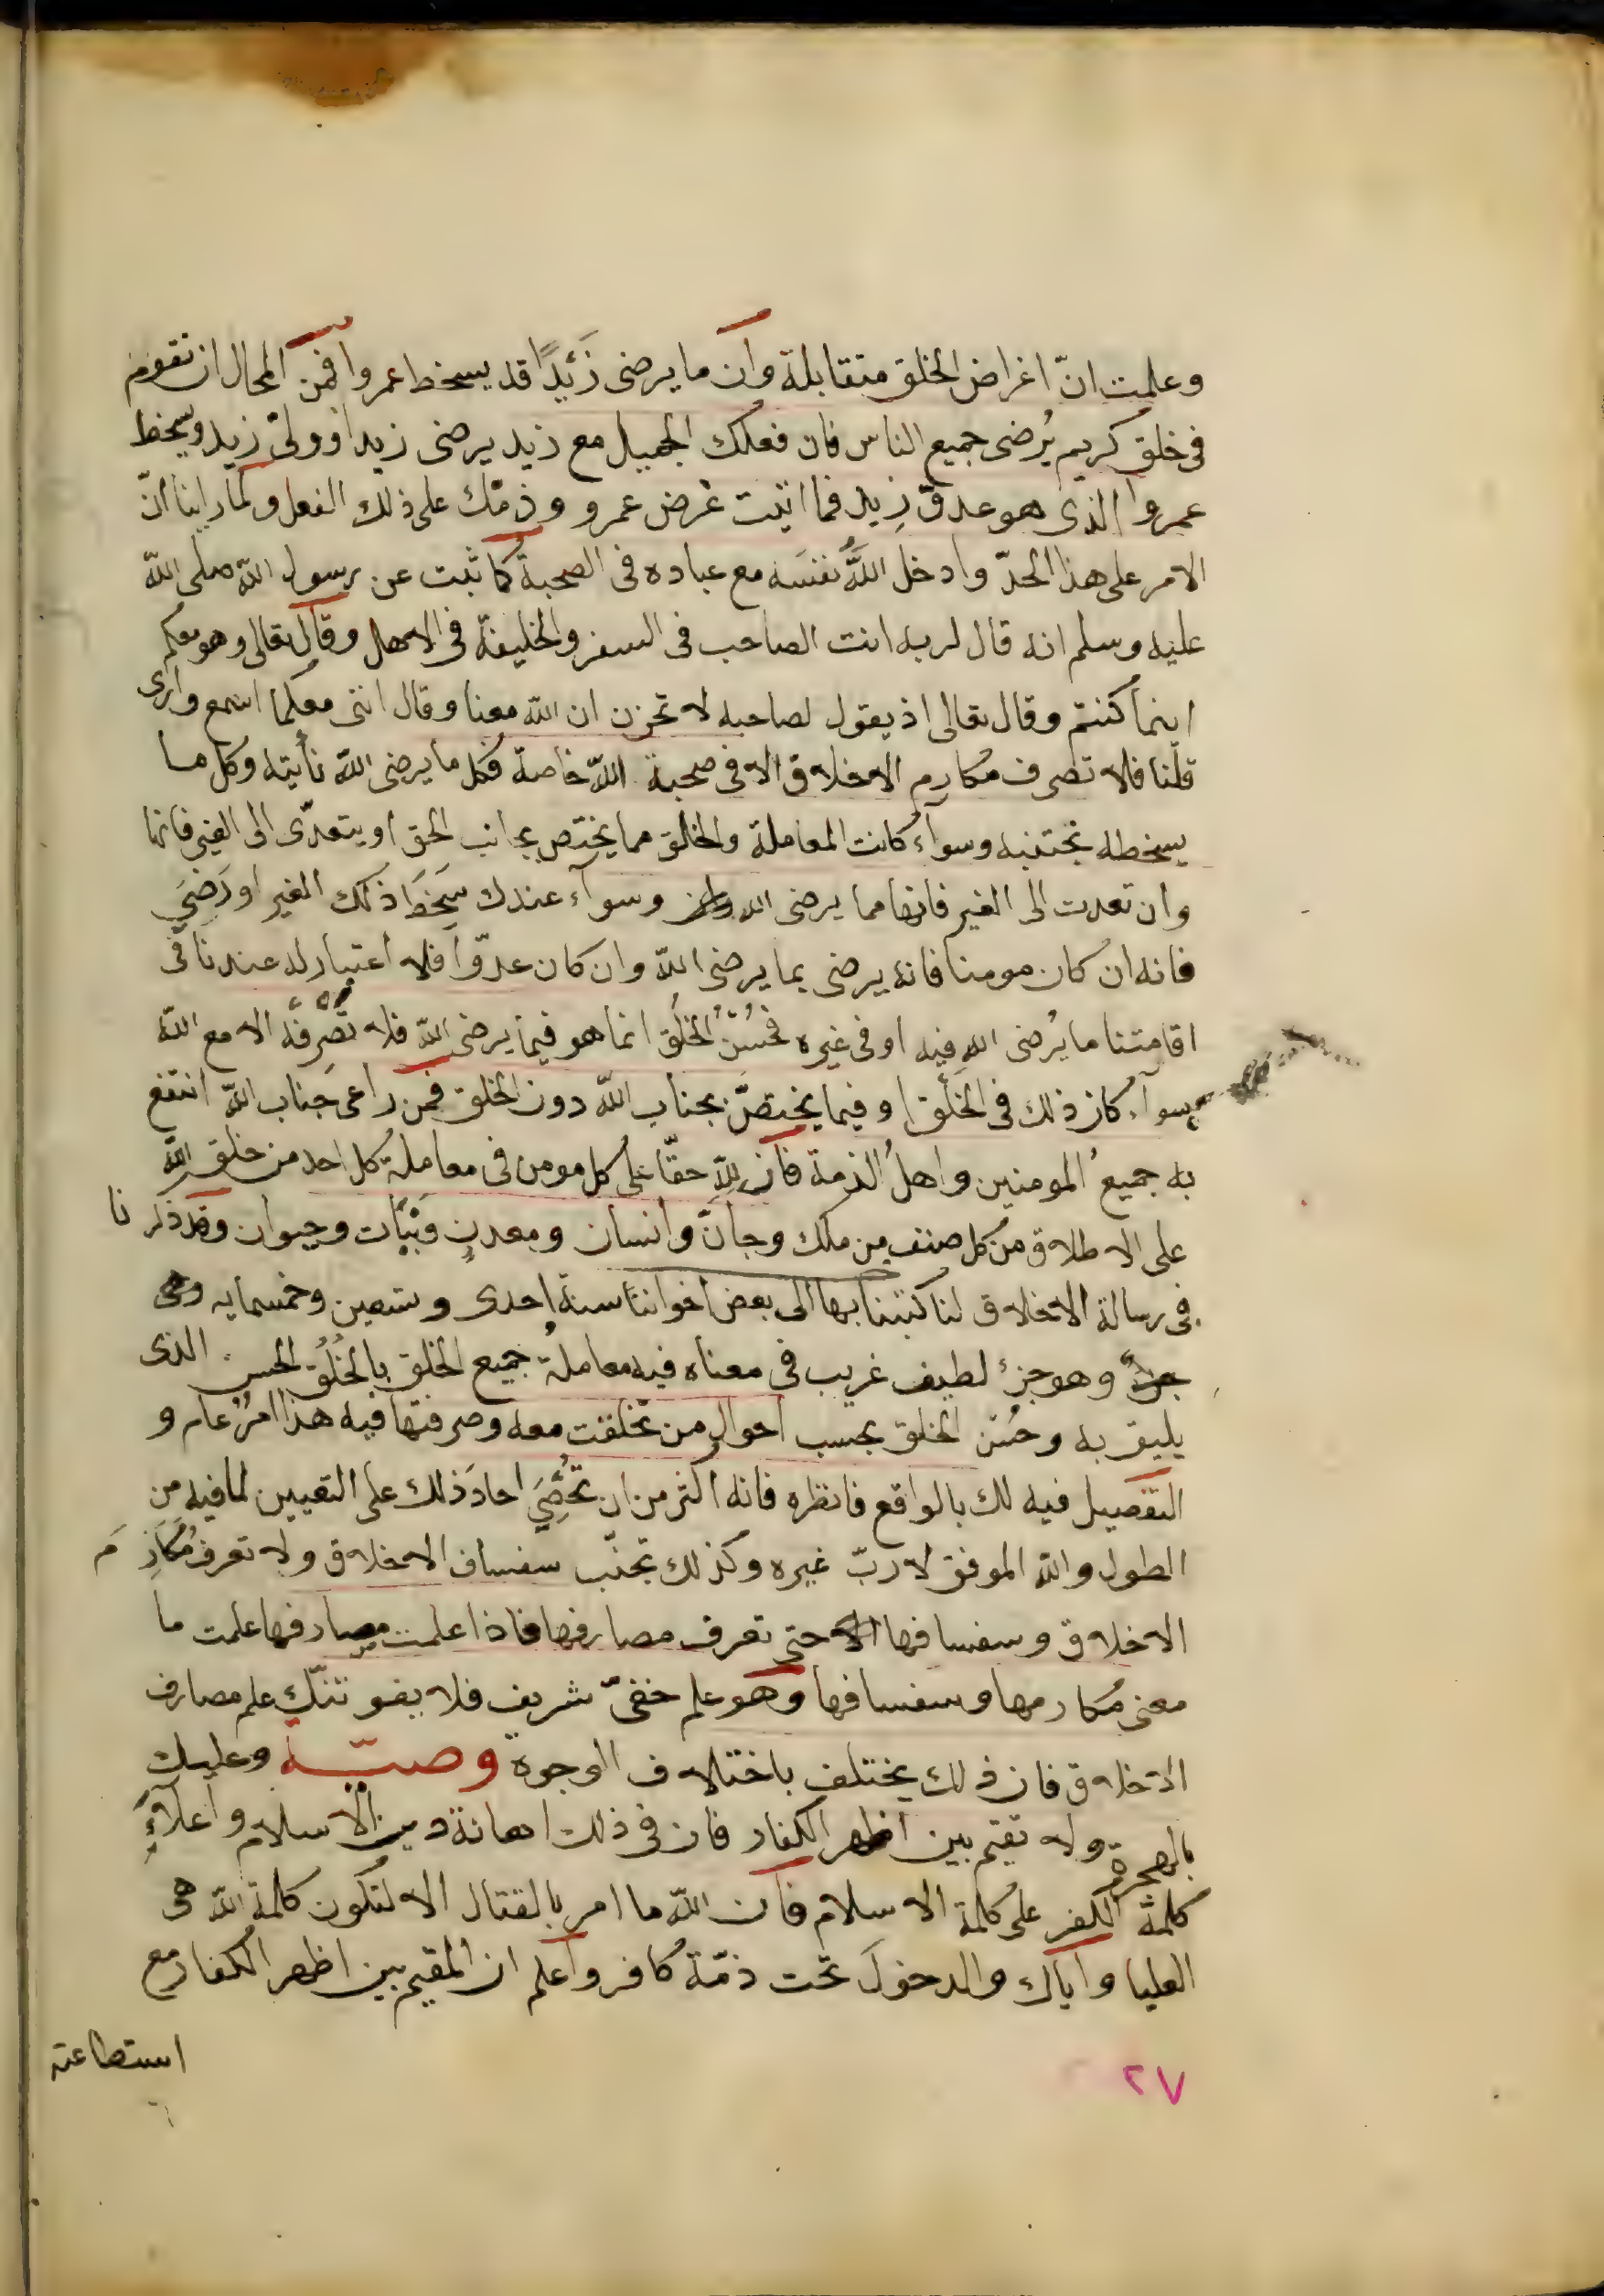 وعلمت انّ اغراض الخلق متقابلة وان ما يرضى زَيْدًا قد يسخط عمروا فمن المحال ان تقوم
فى خلق كريم يُرضى جميع الناس فان فعلك الجميل مع زيد يرضى زيدا وولىّ زيد ويسخط
عمروا الذى هو عدوّ زيد فما اتيت غرض عمرو وذمّك على ذلك الفعل ولما راينا انّ
الامر على هذا الحدّ وادخل اللهُ نفسَه مع عباده فى الصحبة كما ثبت عن رسول الله صلى الله
عليه وسلم انه قال لربه انت الصاحب فى السفر والخليفة فى الاهل وقال تعالى وهو معكم
اينما كنتم وقال تعالى اذ يقول لصاحبه لا تحزن ان الله معنا وقال اننى معكما اسمع وارى
قلنا فلا تصرف مكارم الاخلاق الا فى صحبة الله خاصة فكل ما يرضى الله نأيته وكل ما
يسخطه تجتنبه وسوآء كانت المعاملة والخلق مما يختص بجانب الحق او يتعدّى الى الغير فانها
وان تعدت الى الغير فانها مما يرضى الله وسوآء عندك سَخَط ذلك الغير او رَضىَ
فانه ان كان مومنا فانه يرضى بما يرضى الله وان كان عدوّا فلا اعتبار له عندنا فى
اقامتنا ما يُرضى الله فيه او فى غيره فحُسْنُ الخلُق انما هو فيما يرضى الله فلا تُصرِّفه الا مع الله
سوآء كان ذلك فى الخَلْق او فيما يختصّ بجناب الله دون الخلق فمن راعى جناب الله انتفع
به جميعُ المومنين واهلُ الذمة فان للهِ حقّا على كل مومن فى معاملة كل احد من خلق الله
على الاطلاق من كل صنف من ملك وجانّ وانسان ومعدنٍ ونَبَات وحيوان وقد ذكرنا
فى رسالة الاخلاق لنا كتبنا بها الى بعض اخواننا سنة احدى وتسعين وخمسمايه وهى
وهو جزءٌ لطيف غريب فى معناه فيه معاملةُ جميع الخلق بالخُلُق الحسن الذى
يليق به وحُسْن الخلق بحسب احوال من تخلقت معه وصرفتها فيه هذا امرٌ عام و
التفصيل فيه لك بالواقع فانظره فانه اكثر من ان تُحْصَى احادَ ذلك على التعيين لما فيه من
الطول والله الموفق لا ربّ غيره وكذلك تجنّب سفساف الاخلاق ولا تعرف مَكَارِمَ
الاخلاق وسفسافها حتى تعرف مصارفها فاذا علمت مصارفها علمت ما
معنى مكارمها وسفسافها وهو علم خفىّ شريف فلا يفوتنّك علم مصارف
الاخلاق فان ذلك يختلف باختلاف الوجوة وصيّة وعليك
بالهجرة ولا تقيم بين اظهر الكفار فان فى ذلك اهانة دين الاسلام واعلاءَ
كلمة الكفر على كلمة الاسلام فان الله ما امر بالقتال الا لتكون كلمة الله هى
العليا واياك والدخولَ تحت ذمّة كافر واعلم ان المقيم بين اظهر الكفار مع
استطاعته
٢٧